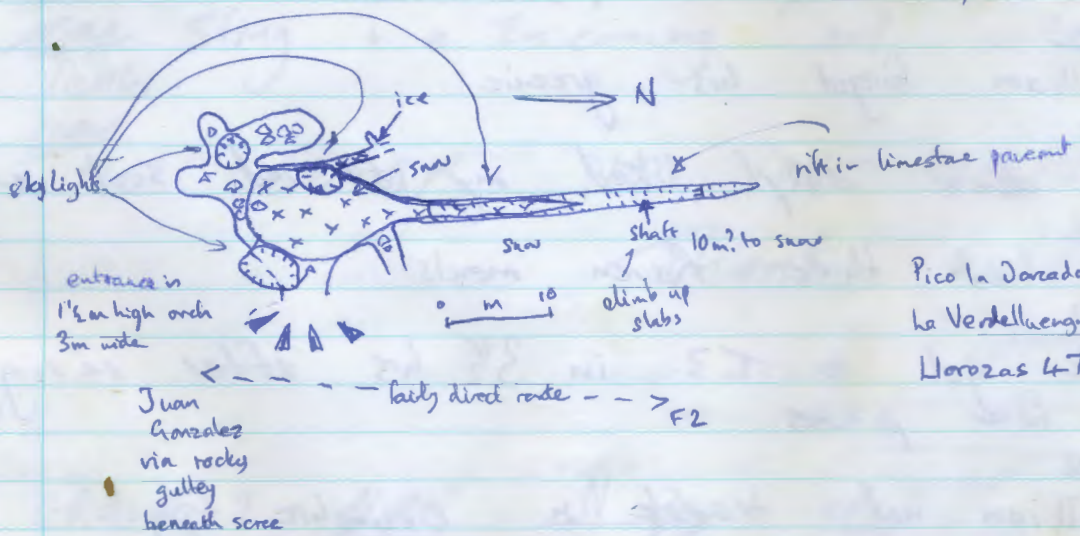 ice
N
sky Lights
snow
rift in limestone pavement
snow
shaft 10m? to snow
climb up
slabs
entrance in
1½m high arch
3m wide
0 m 10
Pico la Jarcada
La Verdelluenga
Llorozas 4-T
fairly direct route
F2
Juan
Gonzalez
via rocky
gulley
beneath scree